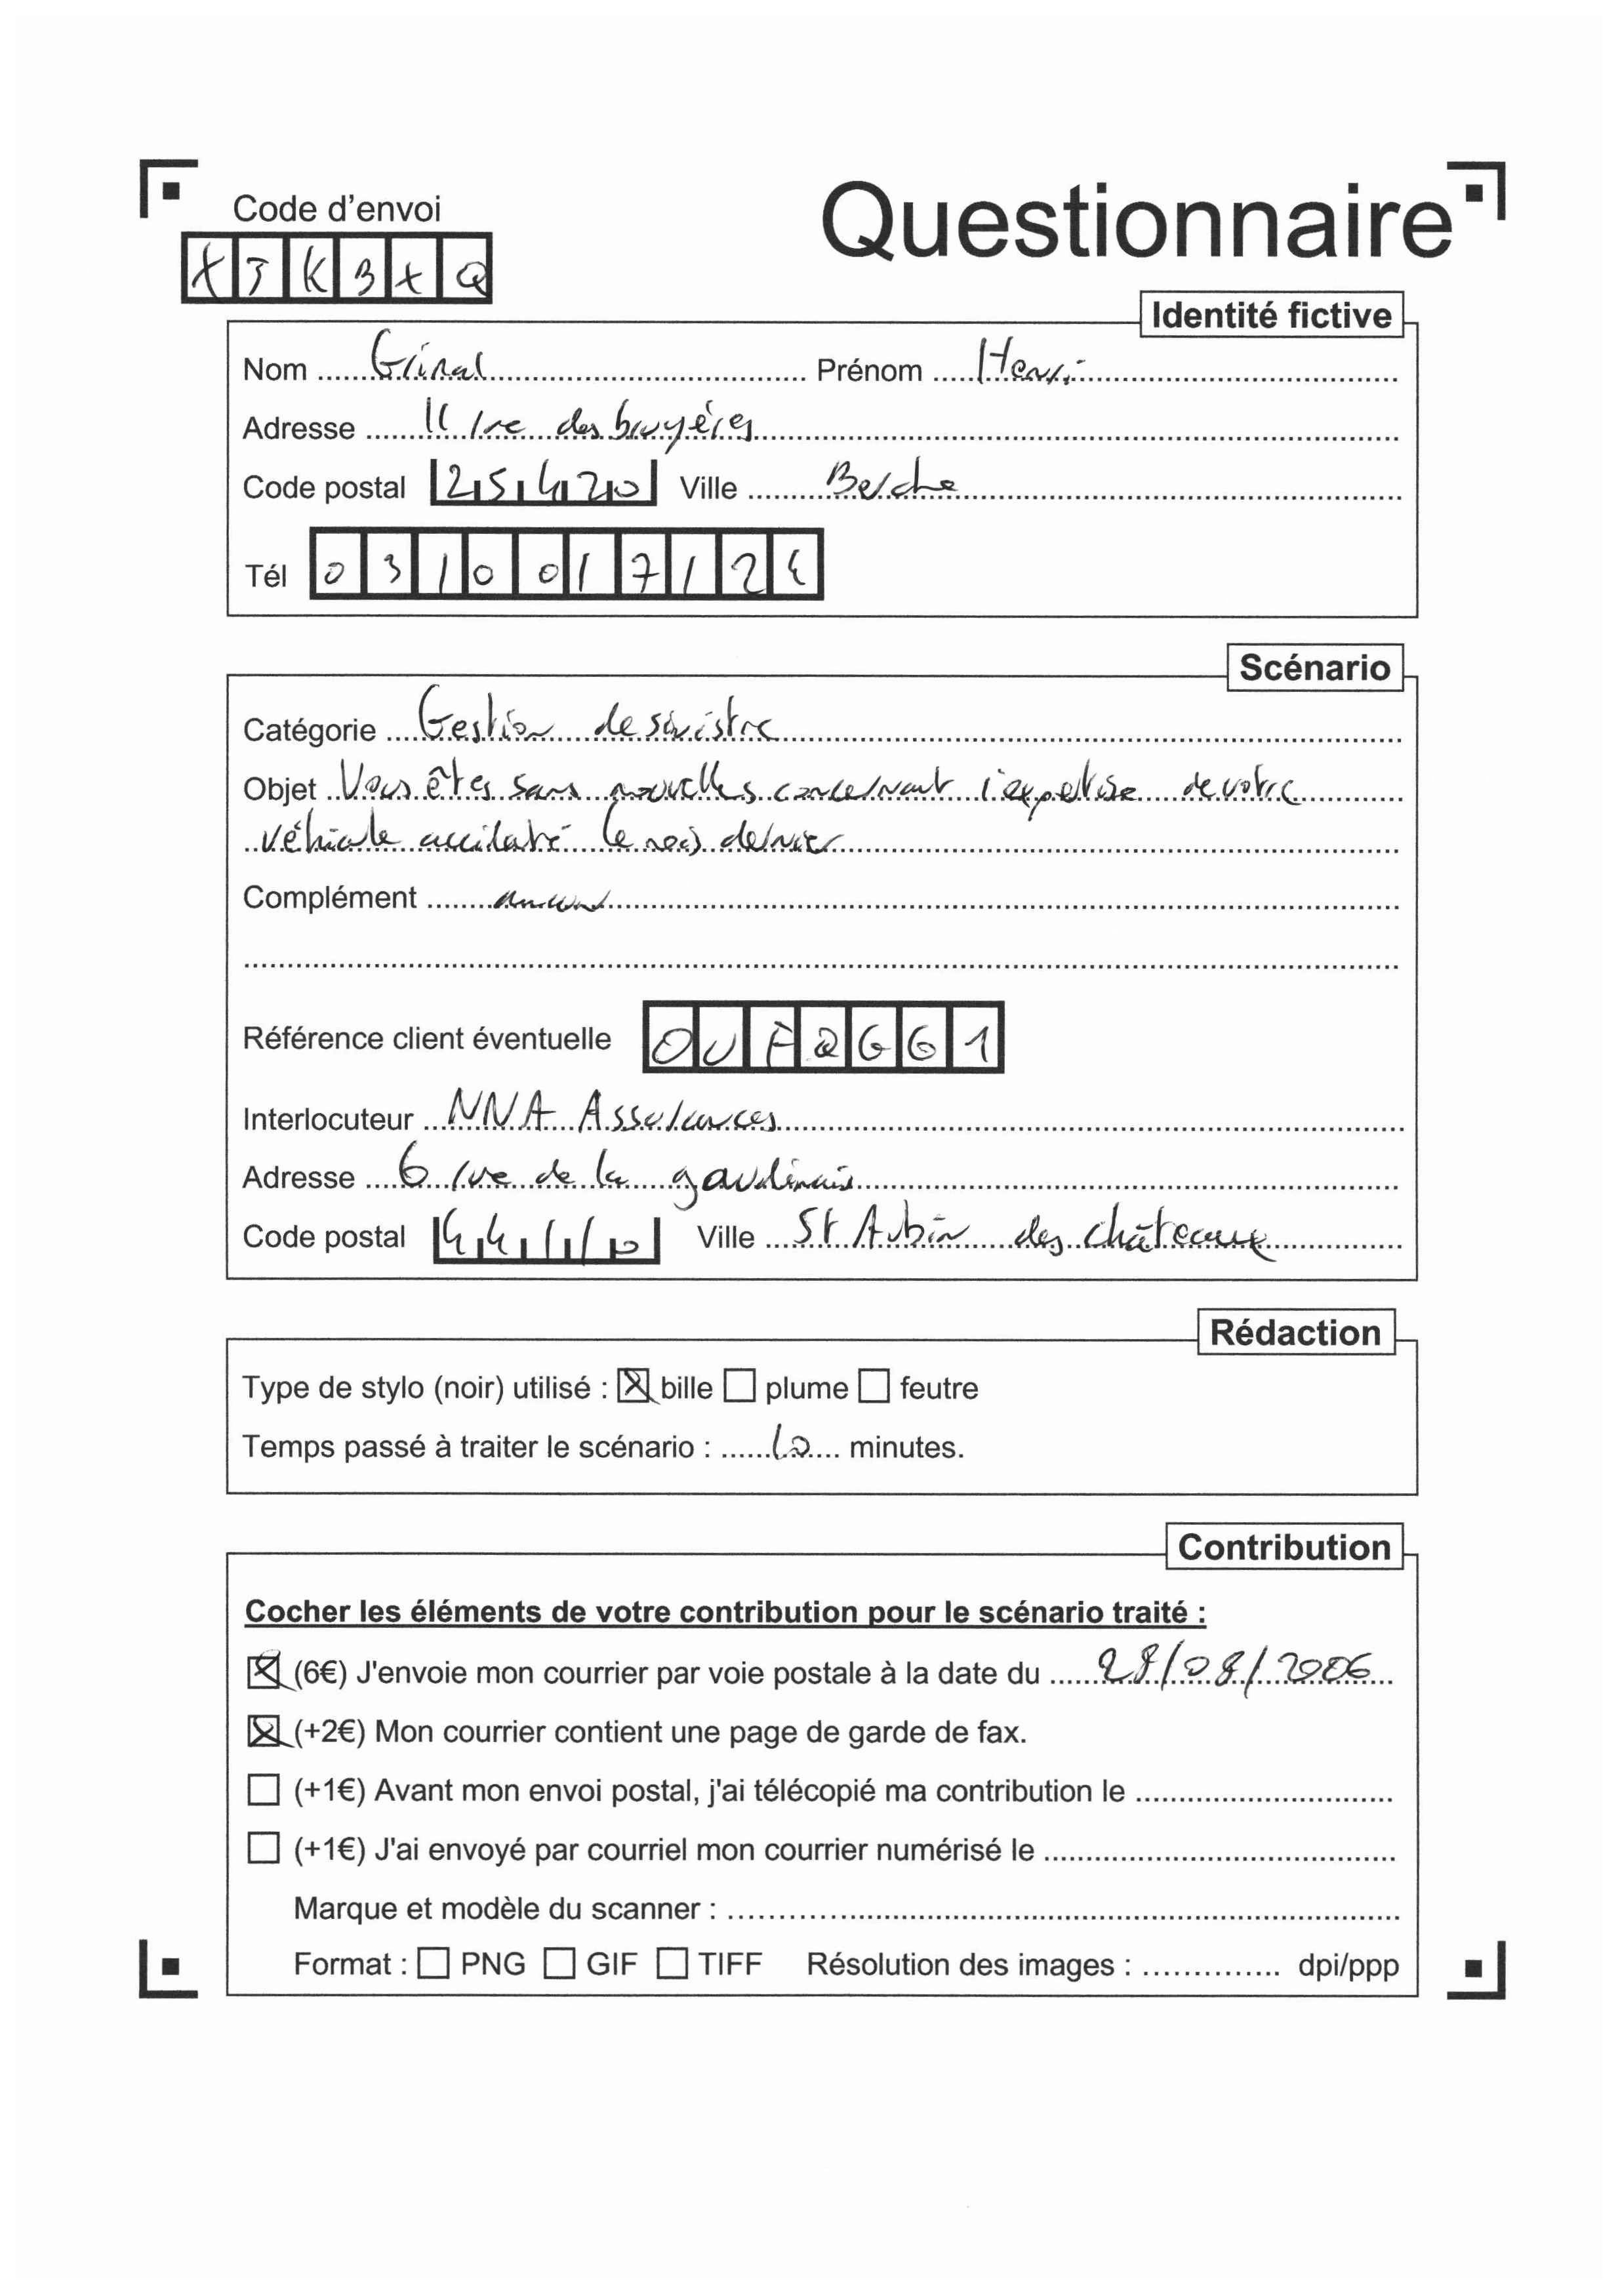 Code d'envoi
Questionnaire
X J K B X Q
Identité fictive
Nom Giral Prénom Henri
Adresse 11 rue des bruyères
Code postal 25420 Ville Berche
Tél 0310017124
Scénario
Catégorie Gestion de sinistre
Objet Vous êtes sans nouvelles concernant l'expertise de votre
véhicule accidenté le mois dernier
Complément aucun
Référence client éventuelle OUF GG1
Interlocuteur NNA Assurances
Adresse 6 rue de la gaudinais
Code postal 44110 Ville St Aubin des châteaux
Rédaction
Type de stylo (noir) utilisé : bille plume feutre
Temps passé à traiter le scénario : 10 minutes.
Contribution
Cocher les éléments de votre contribution pour le scénario traité :
(6€) J'envoie mon courrier par voie postale à la date du 28/08/2006
(+2€) Mon courrier contient une page de garde de fax.
(+1€) Avant mon envoi postal, j'ai télécopié ma contribution le
(+1€) J'ai envoyé par courriel mon courrier numérisé le
Marque et modèle du scanner :
Format : PNG GIF TIFF Résolution des images : dpi/ppp